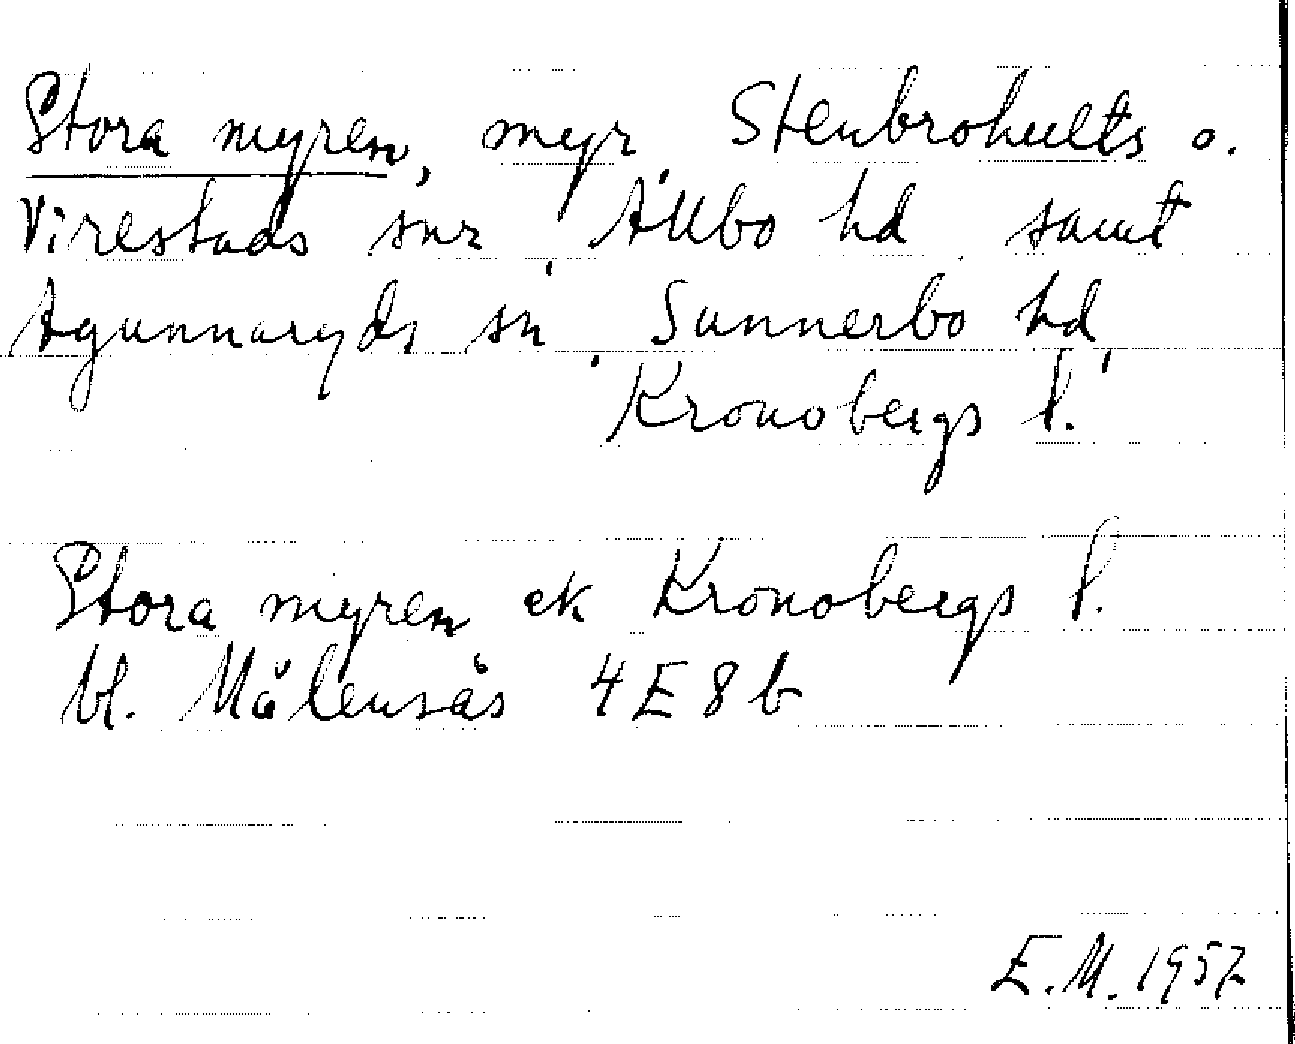 Stora myren, myr, Stenbrohults o.
Virestads snr, Allbo hd samt
Agunnaryds sn, Sunnerbo hd,
Kronobergs l.
Stora myren ek Kronobergs l.
bl. Målensås 4E8b
E.M. 1957